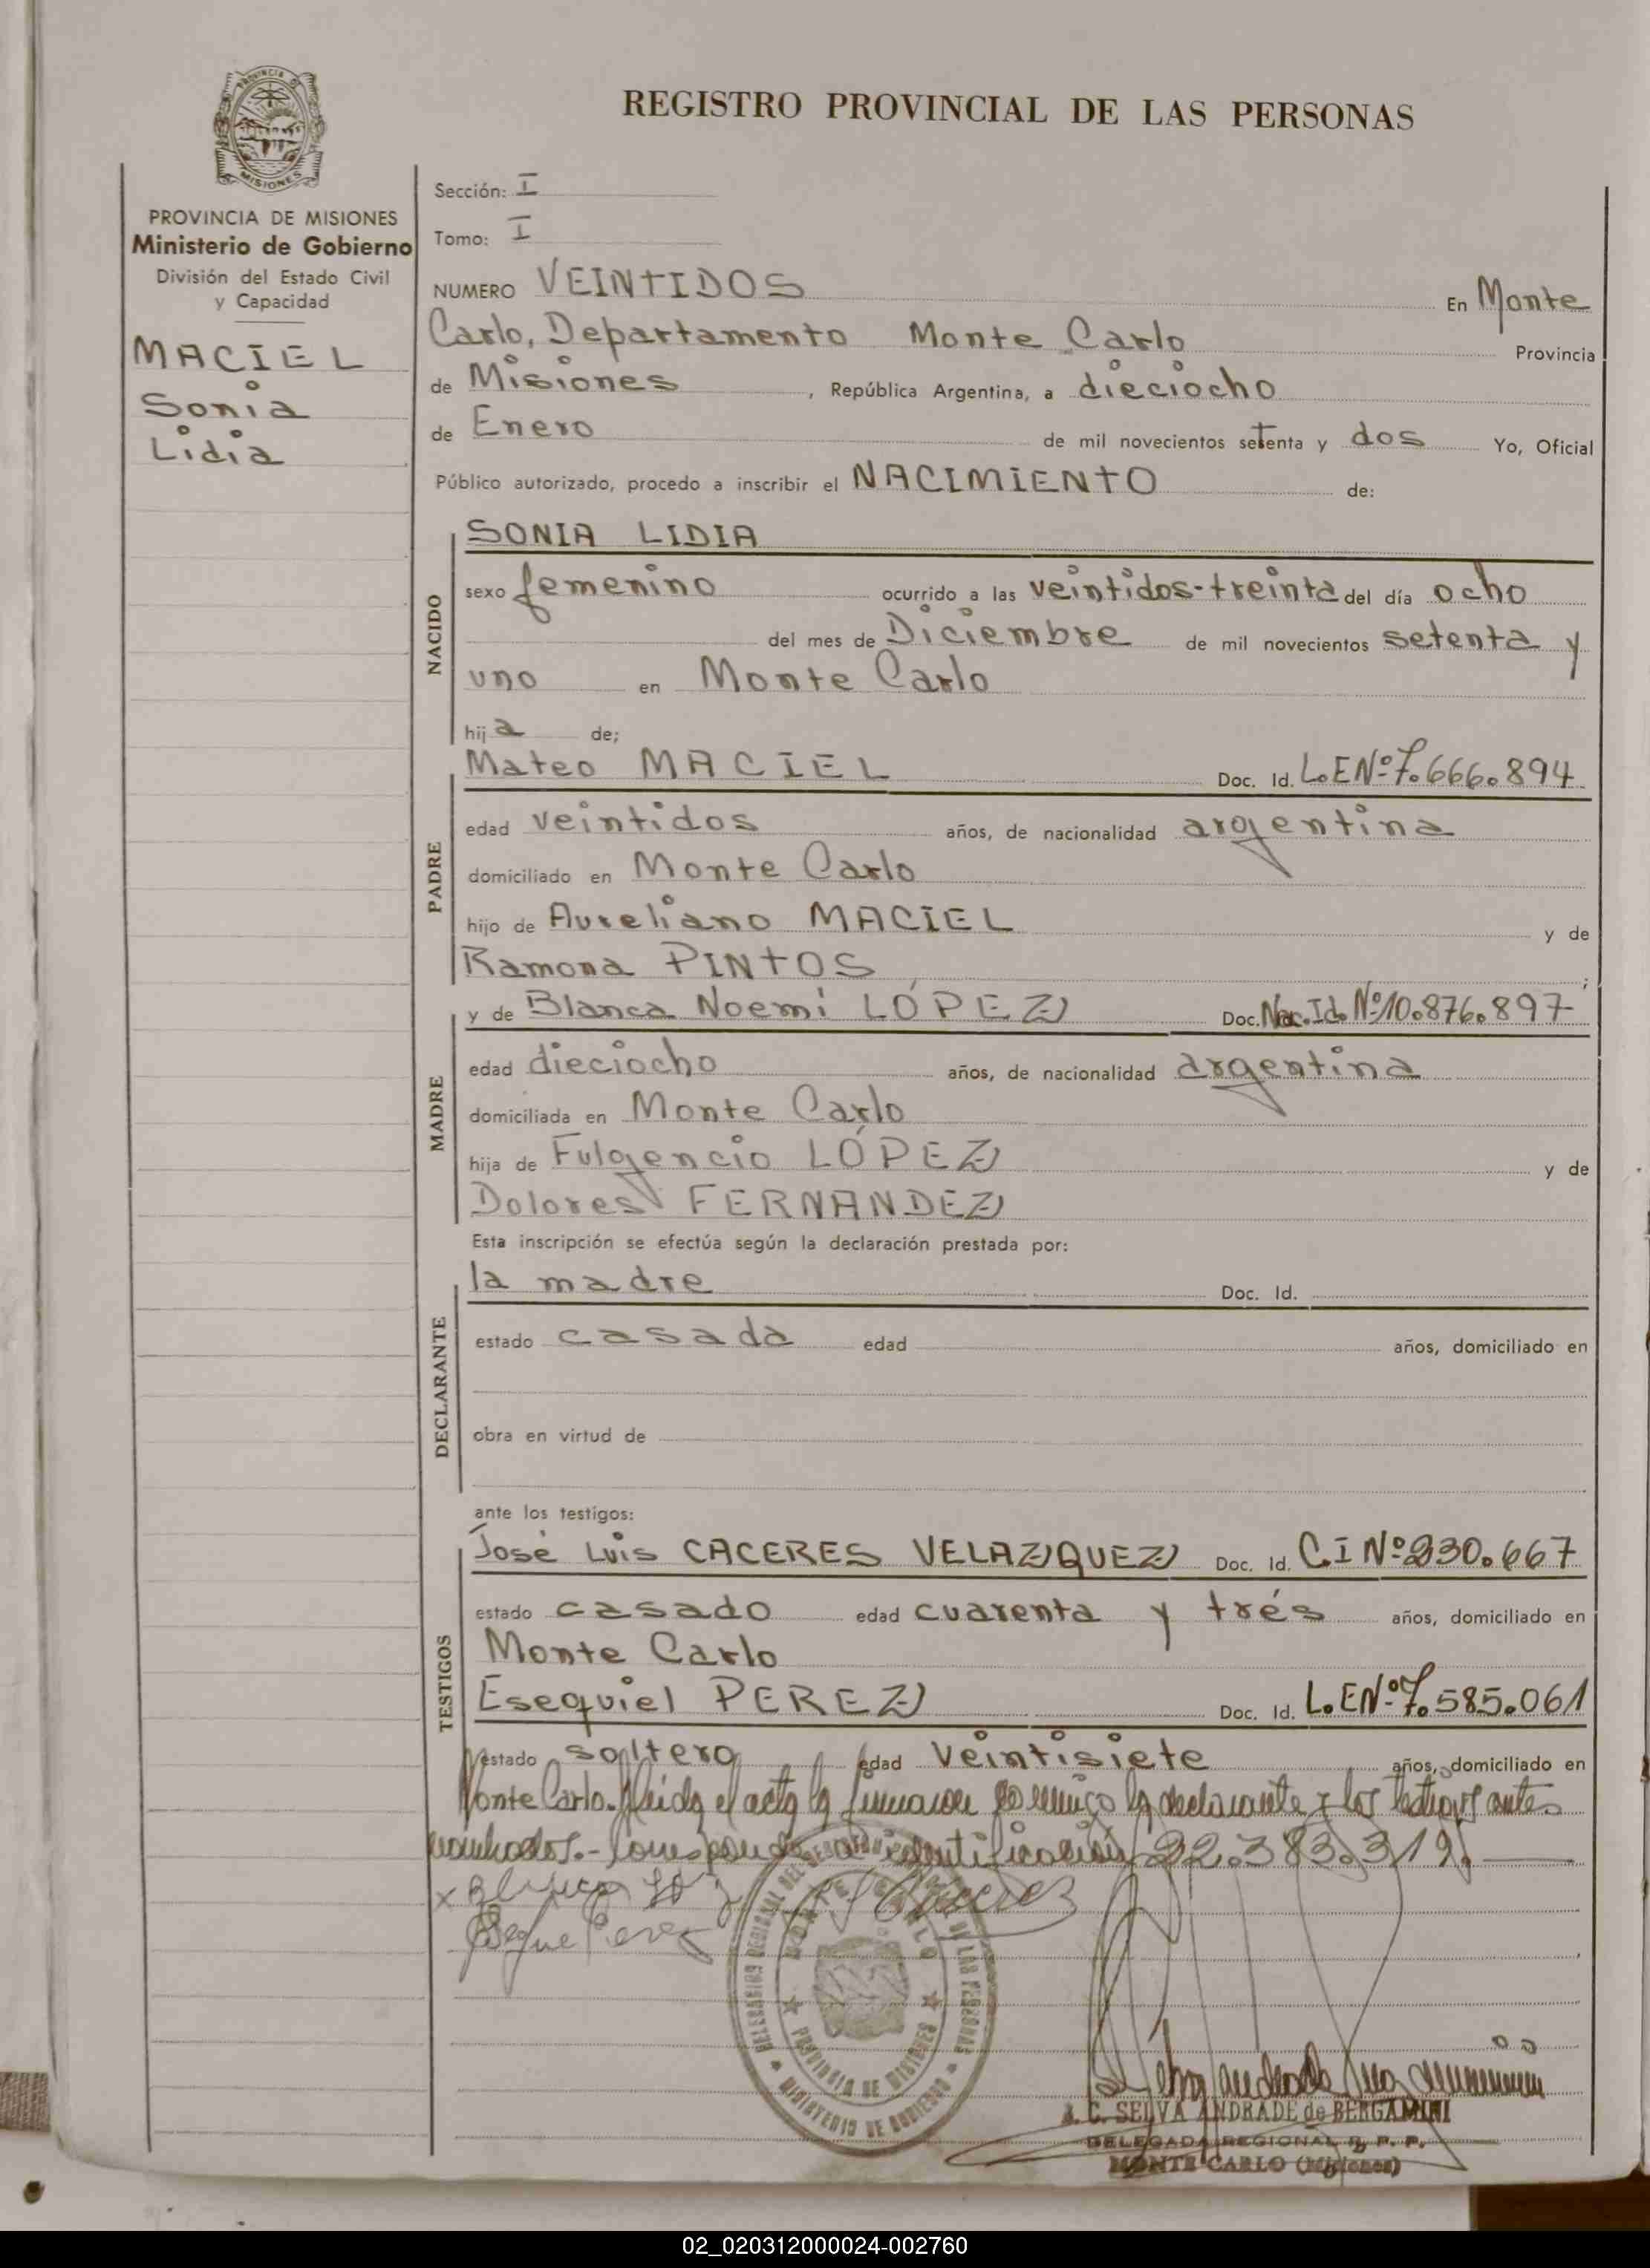 PROVINCIA DE
MISIONES
REGISTRO PROVINCIAL DE LAS PERSONAS
PROVINCIA DE MISIONES
Ministerio de Gobierno
División del Estado Civil
y Capacidad
MACIEL
Sonia
Lidia
Sección: I
Tomo: I
NUMERO VEINTIDOS En Monte
Carlo, Departamento Monte Carlo Provincia
de Misiones, República Argentina, a dieciocho
de Enero de mil novecientos setenta y dos Yo, Oficial
Público autorizado, procedo a inscribir el NACIMIENTO de:
NACIDO
SONIA LIDIA
sexo femenino ocurrido a las veintidos-treinta del día ocho
del mes de Diciembre de mil novecientos setenta y
uno en Monte Carlo
hija de;
PADRE
Mateo MACIEL Doc. Id. L.E Nº 7.666.894
edad veintidos años, de nacionalidad argentina
domiciliado en Monte Carlo
hijo de Aureliano MACIEL y de
Ramona PINTOS ;
MADRE
y de Blanca Noemí LÓPEZ Doc. Nac. Id. Nº 10.876.897
edad dieciocho años, de nacionalidad argentina
domiciliada en Monte Carlo
hija de Fulgencio LÓPEZ y de
Dolores FERNANDEZ
Esta inscripción se efectúa según la declaración prestada por:
DECLARANTE
la madre Doc. Id.
estado casada edad años, domiciliado en
obra en virtud de
ante los testigos:
TESTIGOS
José Luis CACERES VELAZQUEZ Doc. Id. C.I Nº 230.667
estado casado edad cuarenta y trés años, domiciliado en
Monte Carlo
Esequiel PEREZ Doc. Id. L.E Nº 7.585.061
estado soltero edad veintisiete años, domiciliado en
Monte Carlo. Leida el acta la firmaron conmigo la declarante y los testigos antes
nombrados.- Corresponde a identificación 22.383.319.
DELEGACION REGIONAL DEL REGISTRO PROVINCIAL DE LAS PERSONAS
MONTE CARLO
PROVINCIA DE MISIONES
MINISTERIO DE GOBIERNO
C. SELVA ANDRADE de BERGAMINI
DELEGADA REGIONAL R. P. P.
MONTE CARLO (Misiones)
02_020312000024-002760